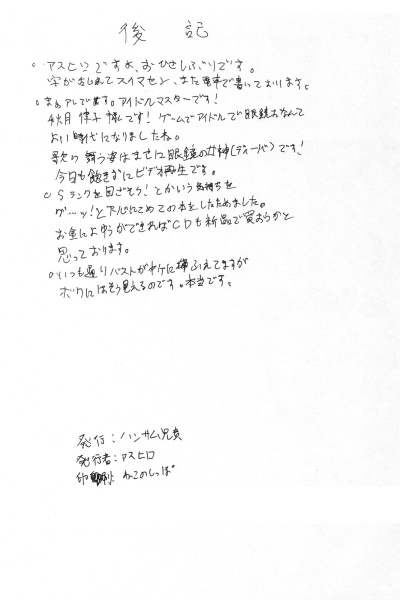 後記
○アスヒロですよ、おひさしぶりです。
字が乱れてスイマセン、また電車で書いております。
○まぁアレですよ。アイドルマスターです!
秋月律子 です!ゲームでアイドルで眼鏡なんて
よい時代になりましたね。
歌い舞う姿はまさに眼鏡の女神(ディーバ)です!
今日も飽きずにビデオ再生です。
○Sランクを目ざそう!とかいう気持ちを
グ…ッ!と下心にこめてこの本をしたためました。
お金によゆうができればCDも新品で買おうかと
思っております。
○いつも通りバストがヤケに ふえてますが
ボクにはそう見えるのです。本当です。
発行:ハンサム兄弟
発行者:アスヒロ
印刷:ねこのしっぽ